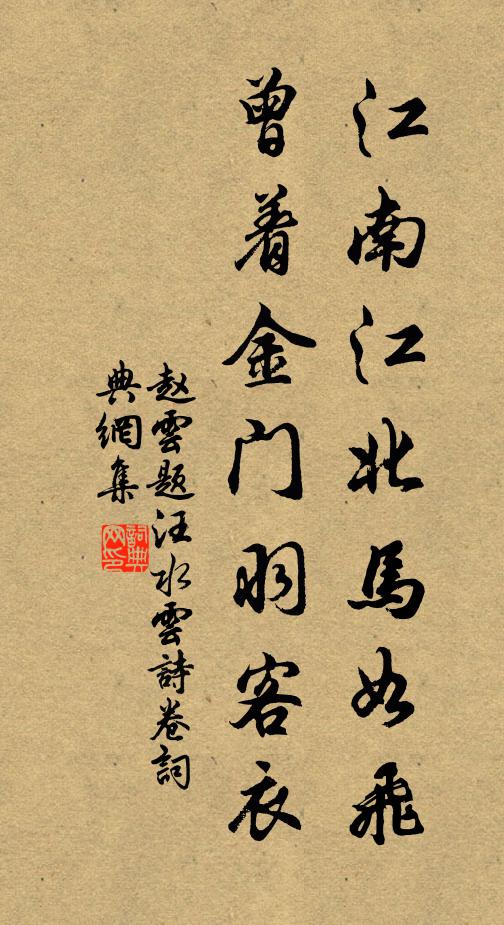 江南江北馬如飛
曾着金门羽客衣
赵雲题汪水雲詩卷詞
典網集
詞典网印